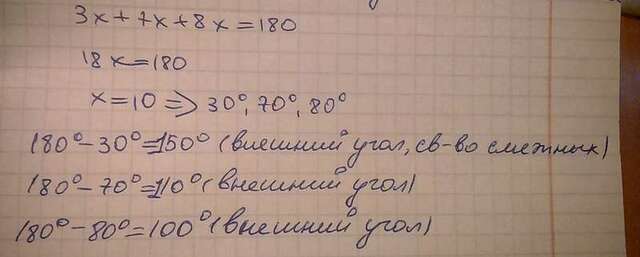 3x+7x+8x=180
18x=180
x=10 => 30°, 70°, 80°
180°-30°=150° (внешний угол, св-во смежных)
180°-70°=110° (внешний угол)
180°-80°=100° (внешний угол)